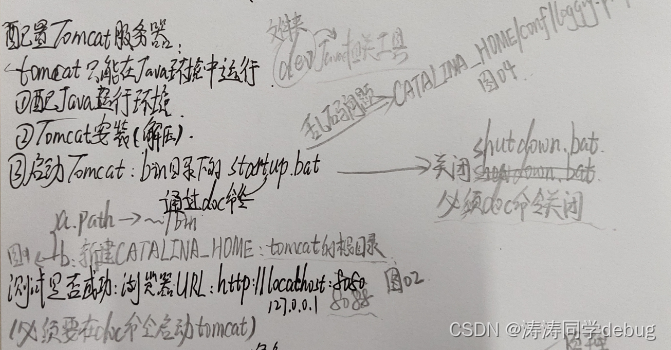 配置Tomcat服务器:
文件夹
dev/Tomcat相关工具
tomcat只能在Java环境中运行
乱码问题 CATALINA_HOME/conf/logging.p
图04
①配Java运行环境
②Tomcat安装(解压)
③启动Tomcat:bin目录下的startup.bat
关闭 shutdown.bat.
通过doc命令
必须doc命令关闭
a.path→~/bin
图1 b:新建CATALINA_HOME:tomcat的根目录
测试是否成功:浏览器URL:http://locathost:8080 图02
127.0.0.1 8088
(必须要在doc命令启动tomcat)
CSDN @涛涛同学debug